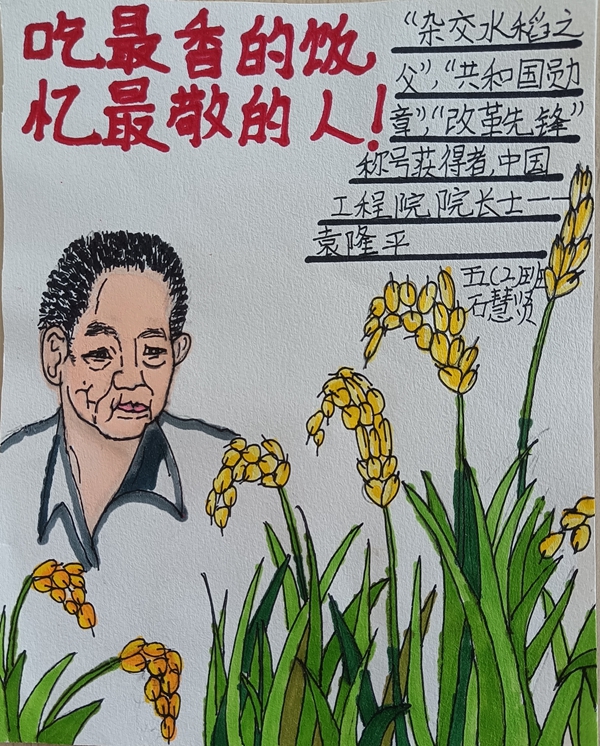 吃最香的饭
忆最敬的人!
“杂交水稻之
父”,“共和国勋
章”,“改革先锋”
称号获得者,中国
工程院院长士——
袁隆平
五(2)班
石慧贤